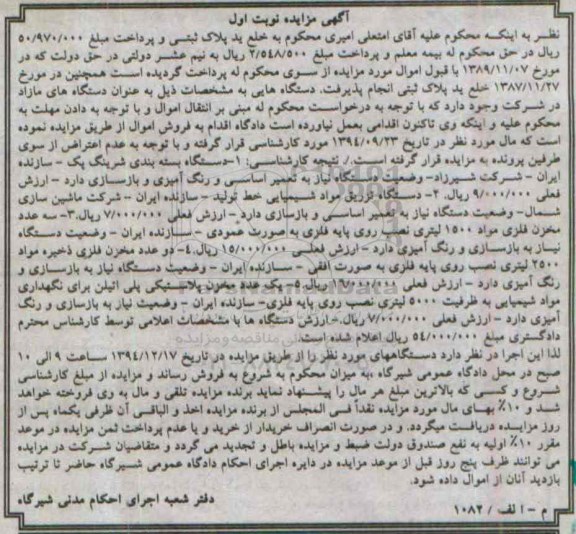 آگهی مزایده نوبت اول
نظر به اینکه محکوم علیه آقای امتعلی امیری محکوم به خلع ید پلاک ثبتی و پرداخت مبلغ ۵۰/۹۷۰/۰۰۰
ریال در حق محکوم له بیمه معلم و پرداخت مبلغ ۲/۵۴۸/۵۰۰ ریال به نیم عشر دولتی در حق دولت که در
مورخ ۱۳۸۹/۱۱/۰۷ با قبول اموال مورد مزایده از سوی محکوم له پرداخت گردیده است همچنین در مورخ
۱۳۸۷/۱۱/۲۷ خلع ید پلاک ثبتی انجام پذیرفت. دستگاه هایی به مشخصات ذیل به عنوان دستگاه های مازاد
در شرکت وجود دارد که با توجه به درخواست محکوم له مبنی بر انتقال اموال و با توجه به دادن مهلت به
محکوم علیه و اینکه وی تاکنون اقدامی بعمل نیاورده است دادگاه اقدام به فروش اموال از طریق مزایده نموده
است که مال مورد نظر در تاریخ ۱۳۹۴/۰۹/۲۳ مورد کارشناسی قرار گرفته و با توجه به عدم اعتراض از سوی
طرفین پرونده به مزایده قرار گرفته است./ نتیجه کارشناسی: ۱-دستگاه بسته بندی شرینگ پک - سازنده
ایران - شرکت شیرزاد- وضعیت دستگاه نیاز به تعمیر اساسی و رنگ آمیزی و بازسازی دارد - ارزش
فعلی ۹/۰۰۰/۰۰۰ ریال. ۲- دستگاه تزریق مواد شیمیایی خط تولید - سازنده ایران - شرکت ماشین سازی
شمال- وضعیت دستگاه نیاز به تعمیر اساسی و بازسازی دارد - ارزش فعلی ۷/۰۰۰/۰۰۰ ریال.۳- سه عدد
مخزن فلزی مواد ۱۵۰۰ لیتری نصب روی پایه فلزی به صورت عمودی - سازنده ایران - وضعیت دستگاه
نیاز به بازسازی و رنگ آمیزی دارد - ارزش فعلی ۱۵/۰۰۰/۰۰۰ ریال.۴- دو عدد مخزن فلزی ذخیره مواد
۲۵۰۰ لیتری نصب روی پایه فلزی به صورت افقی - سازنده ایران - وضعیت دستگاه نیاز به بازسازی و
رنگ آمیزی دارد - ارزش فعلی ریال.۵- یک عدد مخزن پلاستیکی پلی اتیلن برای نگهداری
مواد شیمیایی به ظرفیت ۵۰۰۰ لیتری نصب روی پایه فلزی- سازنده ایران - وضعیت نیاز به بازسازی و رنگ
آمیزی دارد - ارزش فعلی ۷/۰۰۰/۰۰۰ ریال.- ارزش دستگاه ها با مشخصات اعلامی توسط کارشناس محترم
دادگستری مبلغ ۵۴/۰۰۰/۰۰۰ ریال اعلام شده است.
لذا این اجرا در نظر دارد دستگاههای مورد نظر را از طریق مزایده در تاریخ ۱۳۹۴/۱۲/۱۷ ساعت ۹ الی ۱۰
صبح در محل دادگاه عمومی شیرگاه ،به میزان محکوم به شروع به فروش رساند و مزایده از مبلغ کارشناسی
شروع و کسی که بالاترین مبلغ هر مال را پیشنهاد نماید برنده مزایده تلقی و مال به وی فروخته خواهد
شد و ۱۰٪ بهای مال مورد مزایده نقداً فی المجلس از برنده مزایده اخذ و الباقی آن ظرفی یکماه پس از
روز مزایده دریافت میگردد. و در صورت انصراف خریدار از خرید و یا عدم پرداخت ثمن مزایده در موعد
مقرر ۱۰٪ اولیه به نفع صندوق دولت ضبط و مزایده باطل و تجدید می گردد و متقاضیان شرکت در مزایده
می توانند ظرف پنج روز قبل از موعد مزایده در دایره اجرای احکام دادگاه عمومی شیرگاه حاضر تا ترتیب
بازدید آنان از اموال داده شود.
دفتر شعبه اجرای احکام مدنی شیرگاه
م - ا لف / ۱۰۸۲